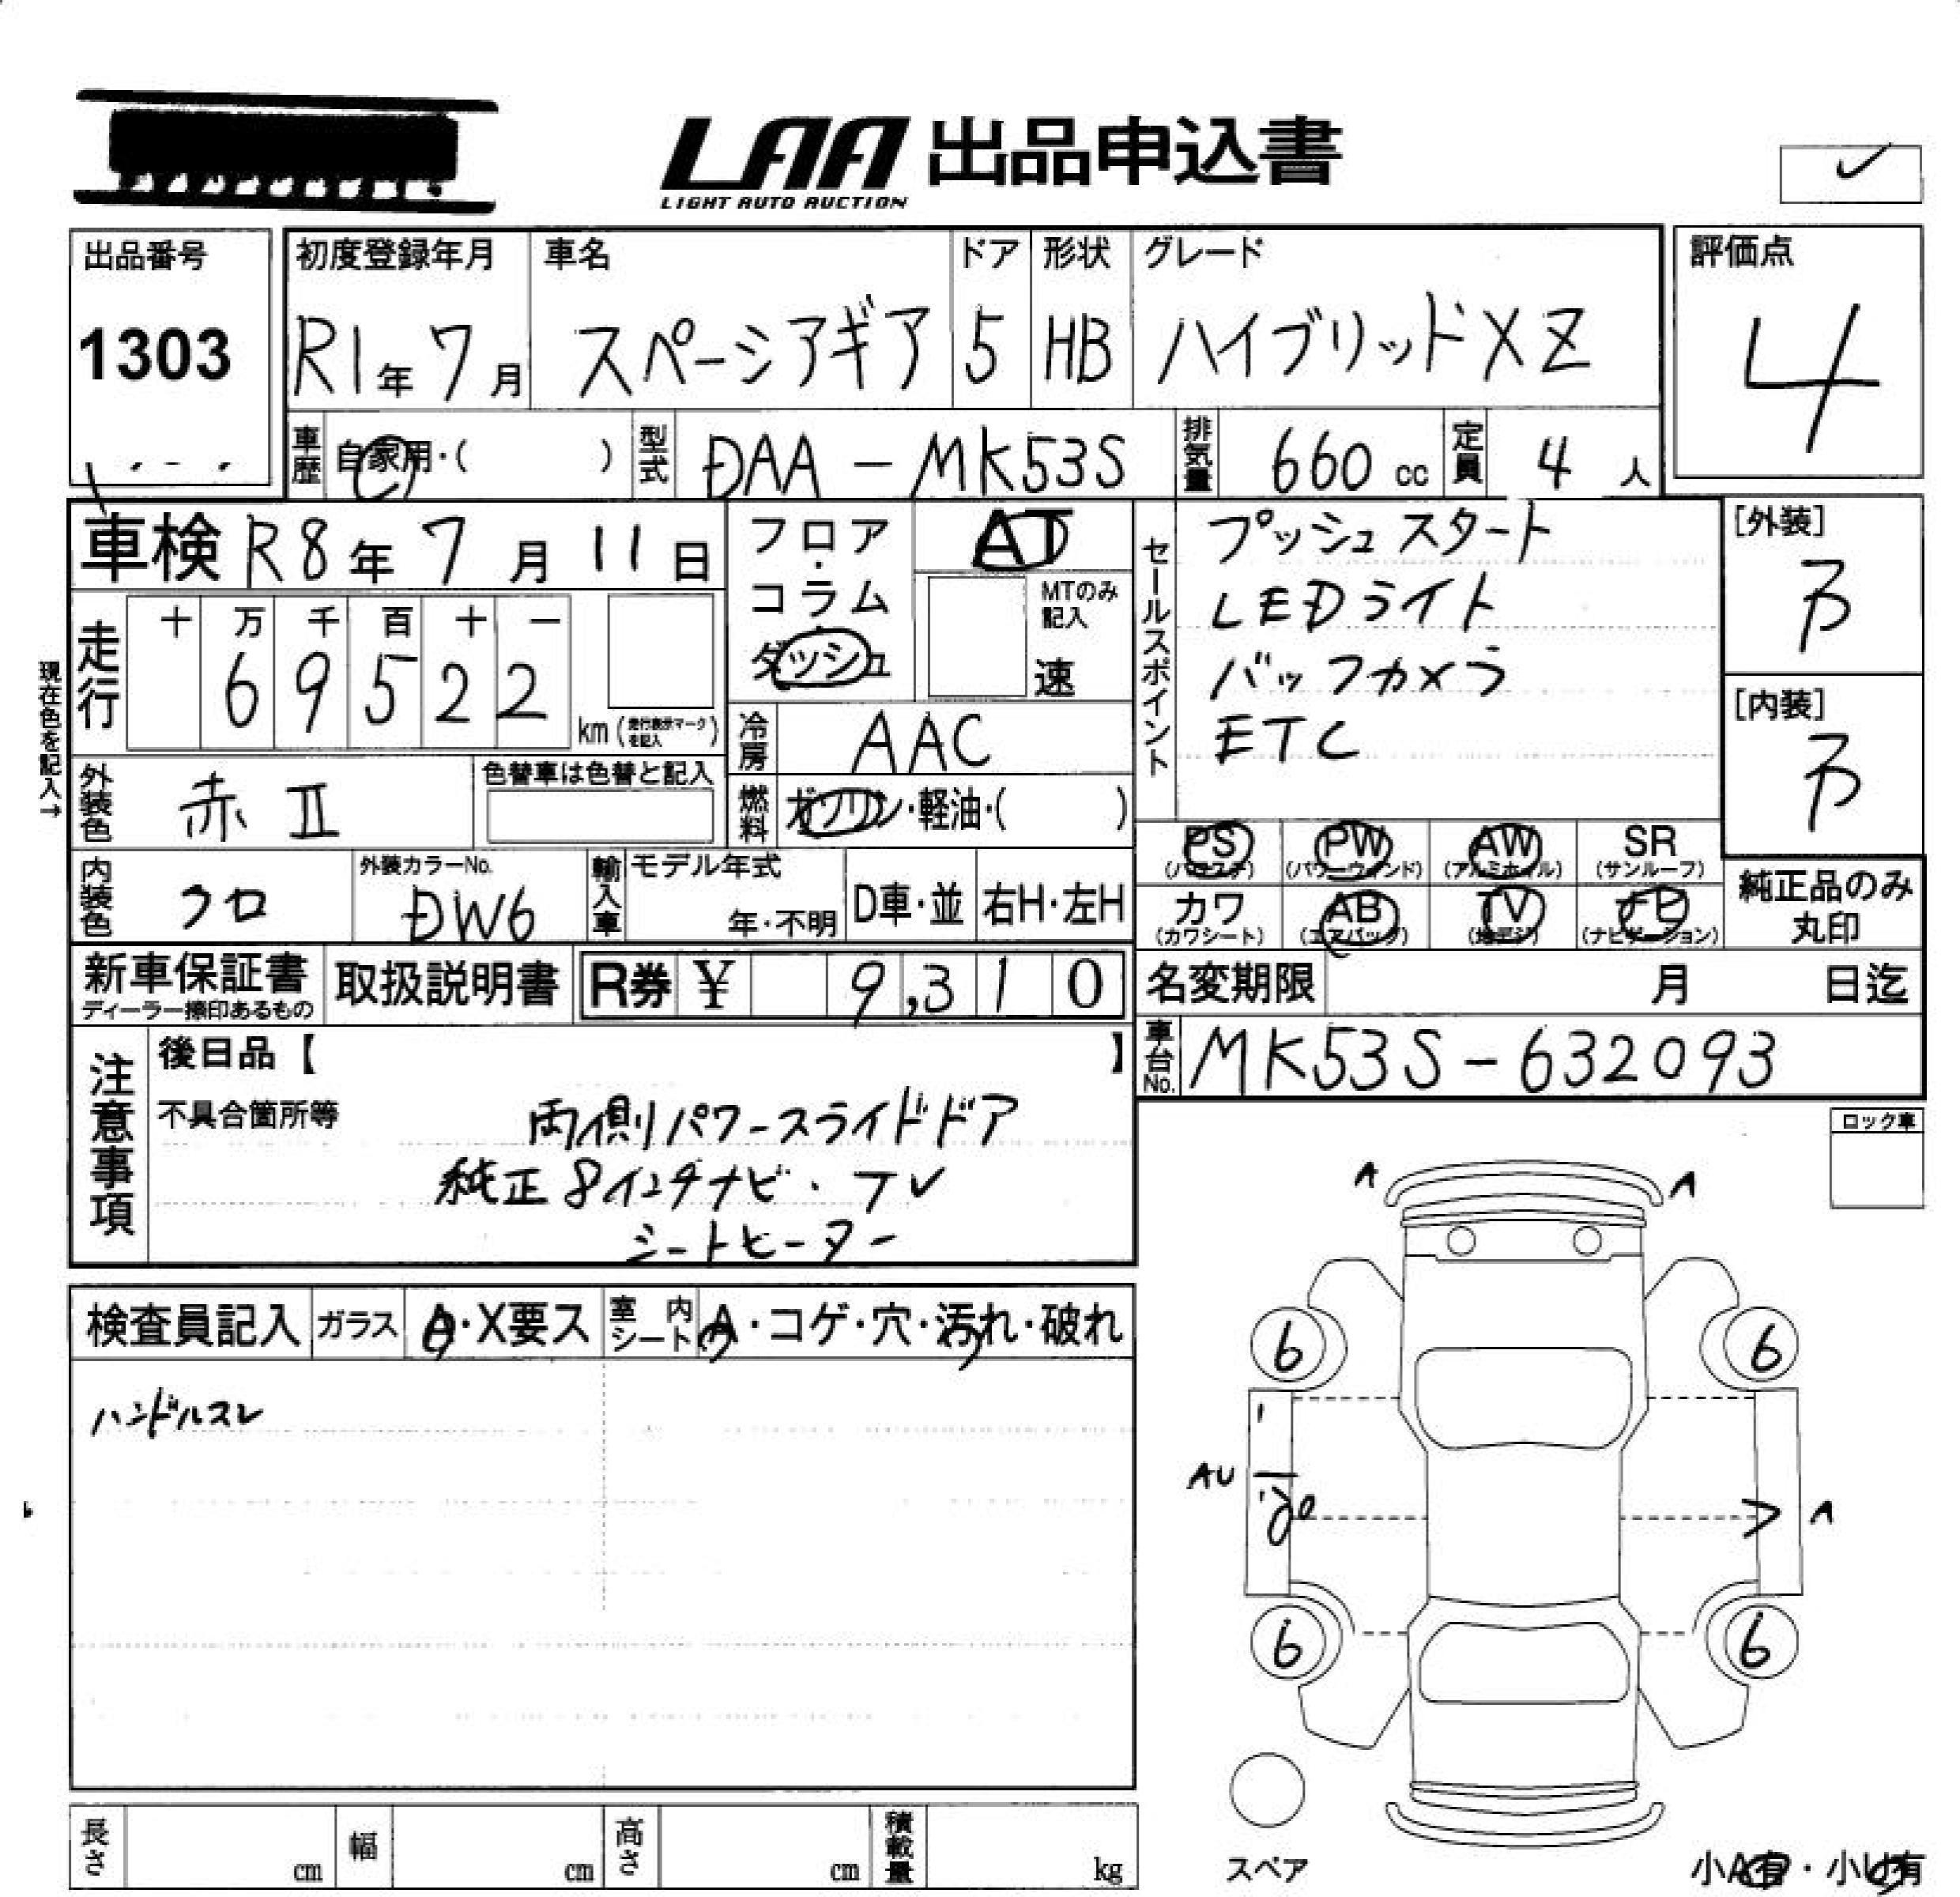 LAA 出品申込書
LIGHT AUTO AUCTION
出品番号
1303
初度登録年月
R1年7月
車名
スペーシアギア
ドア
5
形状
HB
グレード
ハイブリッドXZ
評価点
4
車歴 自家用・( )
型式 DAA-MK53S
排気量 660cc
定員 4人
車検 R8年7月11日
フロア・コラム・ダッシュ
AT
MTのみ記入
速
セールスポイント
プッシュスタート
LEDライト
バックカメラ
ETC
[外装]
B
[内装]
B
現在色を記入→
走行
十 万 千 百 十 一
6 9 5 2 2
km (走行表示マークを記入)
冷房 AAC
外装色 赤II
色替車は色替と記入
燃料 ガソリン・軽油・( )
PS (パワステ)
PW (パワーウインド)
AW (アルミホイル)
SR (サンルーフ)
カワ (カワシート)
AB (エアバッグ)
TV (地デジ)
ナビ (ナビゲーション)
純正品のみ丸印
内装色 クロ
外装カラーNo.
DW6
輸入車 モデル年式
年・不明
D車・並
右H・左H
新車保証書
ディーラー捺印あるもの
取扱説明書
R券 ¥ 9,310
名変期限 月 日迄
車台No. MK53S-632093
注意事項
後日品【 】
不具合箇所等
両側パワースライドドア
純正8インチナビ・TV
シートヒーター
ロック車
A A
検査員記入
ガラス A・X要ス
室内シート A・コゲ・穴・汚れ・破れ
ハンドルスレ
6 6
AU
A
6 6
スペア
長さ cm
幅 cm
高さ cm
積載量 kg
小A有・小U有